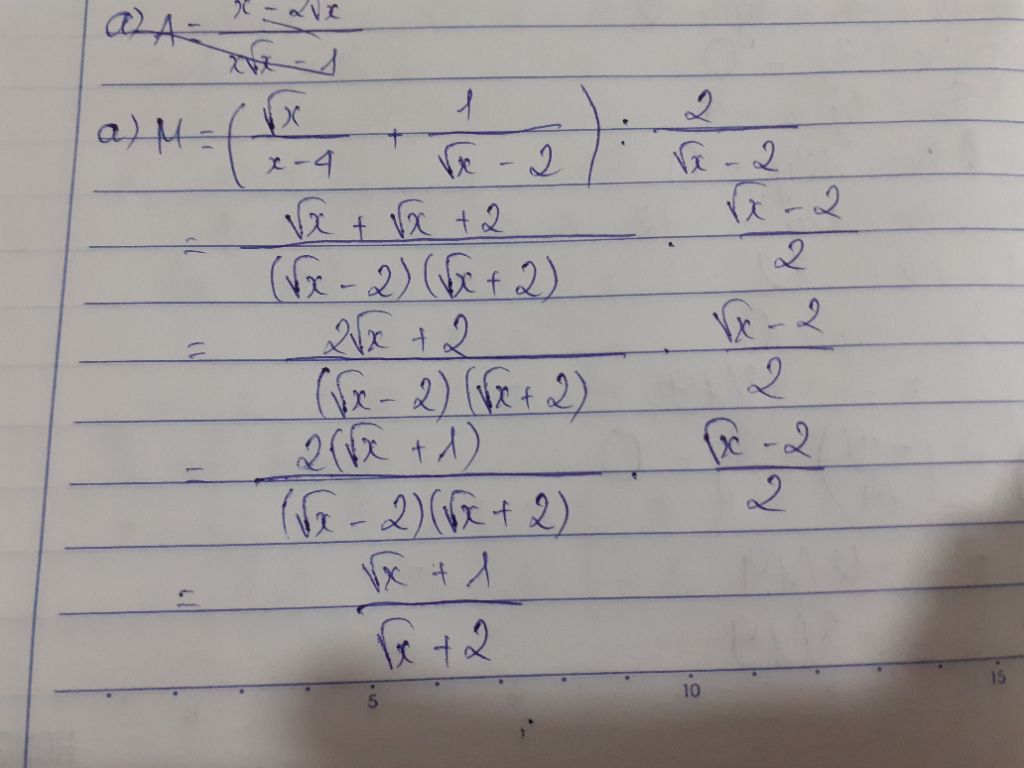 a) A = x - 2√x / x√x - 1
a) M = ( √x / x - 4 + 1 / √x - 2 ) : 2 / √x - 2
= √x + √x + 2 / (√x - 2)(√x + 2) . √x - 2 / 2
= 2√x + 2 / (√x - 2)(√x + 2) . √x - 2 / 2
= 2(√x + 1) / (√x - 2)(√x + 2) . √x - 2 / 2
= √x + 1 / √x + 2
5 10 15